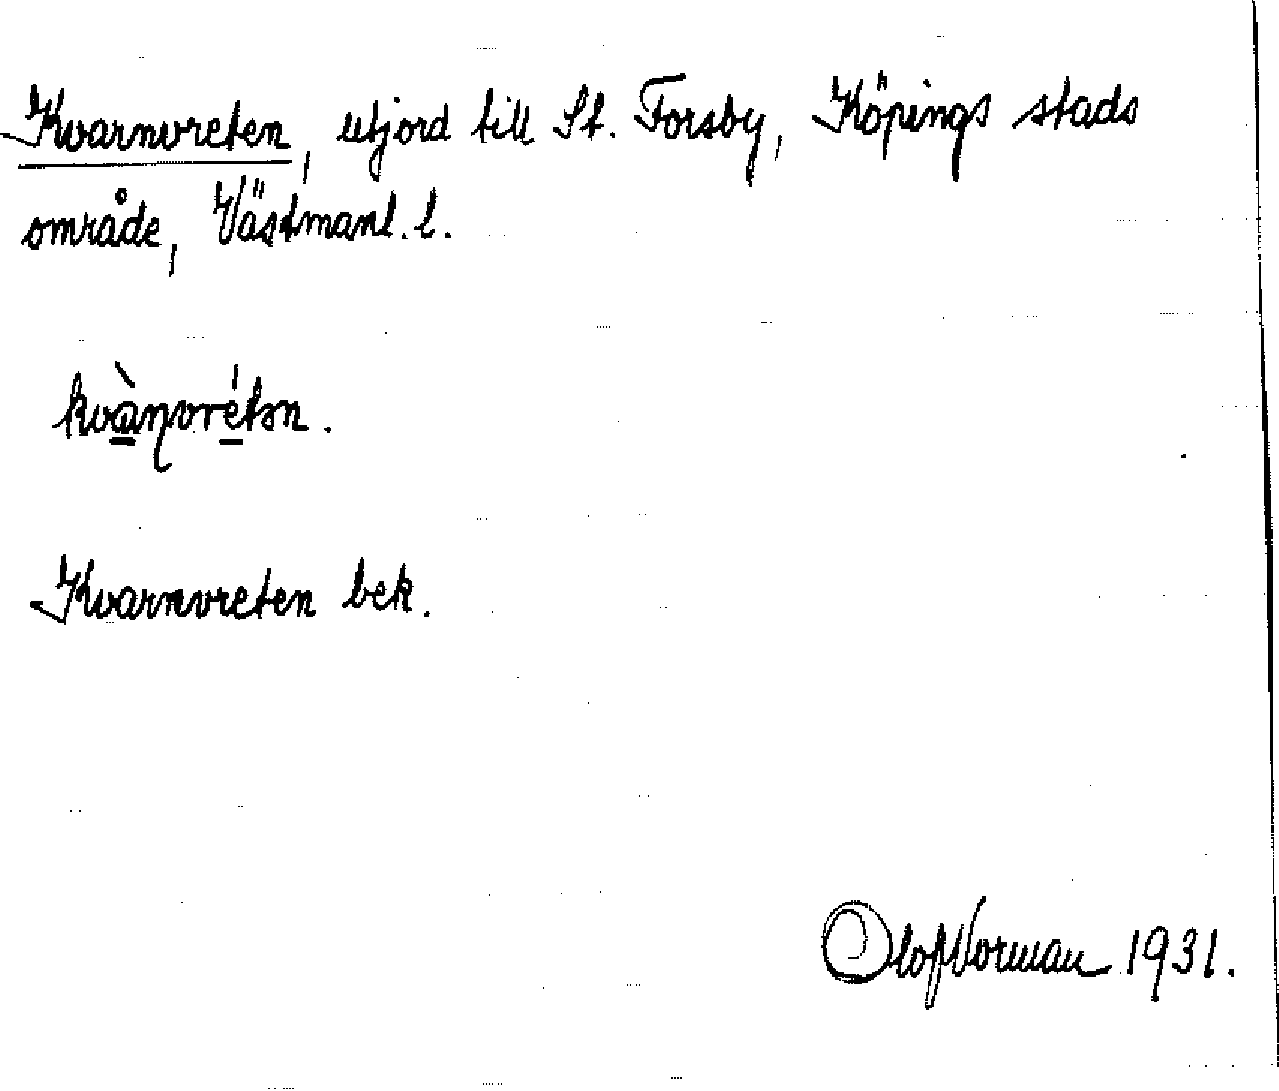 Kvarnvreten, utjord till St. Forsby, Köpings stads
område, Västmanl. l.
kvànvrétən.
Kvarnvreten bek.
Olof Norman 1931.